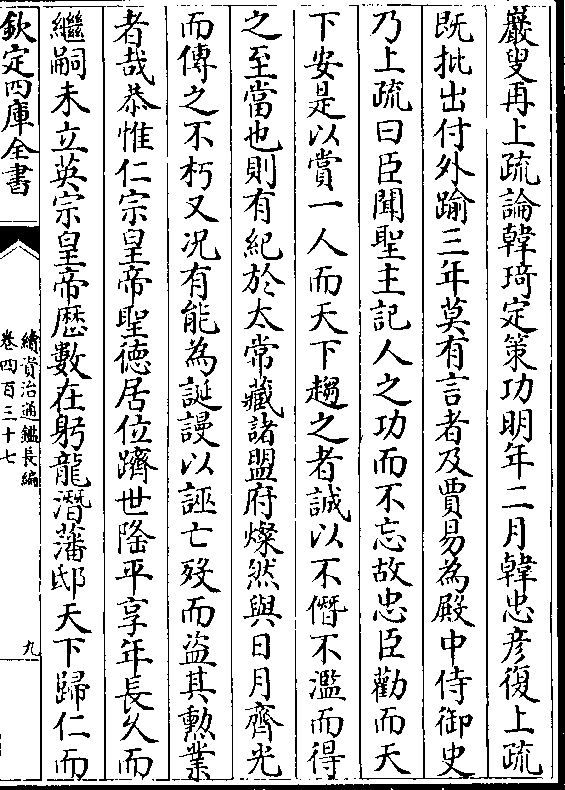 巖叟再上疏論韓琦定策功明年二月韓忠彦復上疏
既批出付外踰三年莫有言者及賈易為殿中侍御史
乃上疏曰臣聞聖主記人之功而不忘故忠臣勸而天
下安是以賞一人而天下趨之者誠以不僭不濫而得
之至當也則有紀於太常藏諸盟府燦然與日月齊光
而傳之不朽又况有能為誕謾以誣亡殁而盗其勲業
者哉恭惟仁宗皇帝聖徳居位躋世隆平享年長久而
繼嗣未立英宗皇帝歴數在躬龍潛藩邸天下歸仁而
欽定四庫全書
續資治通鑑長編
卷四百三十七
九